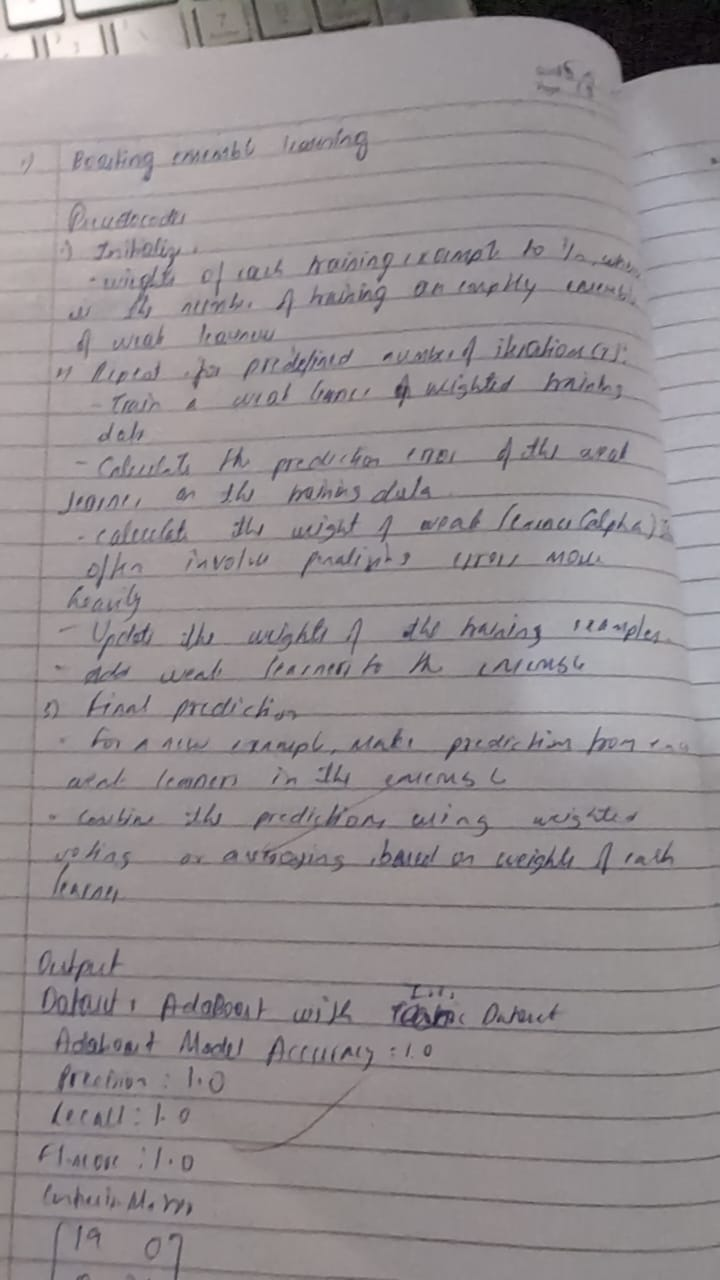 1) Boosting ensembl learning
Pseudocode
1) Initialize.
- weights of each training exampl to 1/n, where
is the number of training an empty ensemble
of weak learners
2) Repeat for predefined number of iteration (T):
- Train a weak learner of weighted training
data
- Calculate the prediction error of the weak
learner on the training data
- calculate the weight of weak learner (alpha)
often involve penalizing errors more
heavily
- Update the weights of the training examples
- add weak learners to the ensemble
3) Final prediction
- For a new exampl, make prediction from
weak learners in the ensembl
- Combine the predictions using weighted
voting or averaging based on weights of each
learner
Output
Dataset: AdaBoost with Dataset
Adaboost Model Accuracy : 1.0
Precision : 1.0
Recall : 1.0
F1-score : 1.0
Confusion
19 0